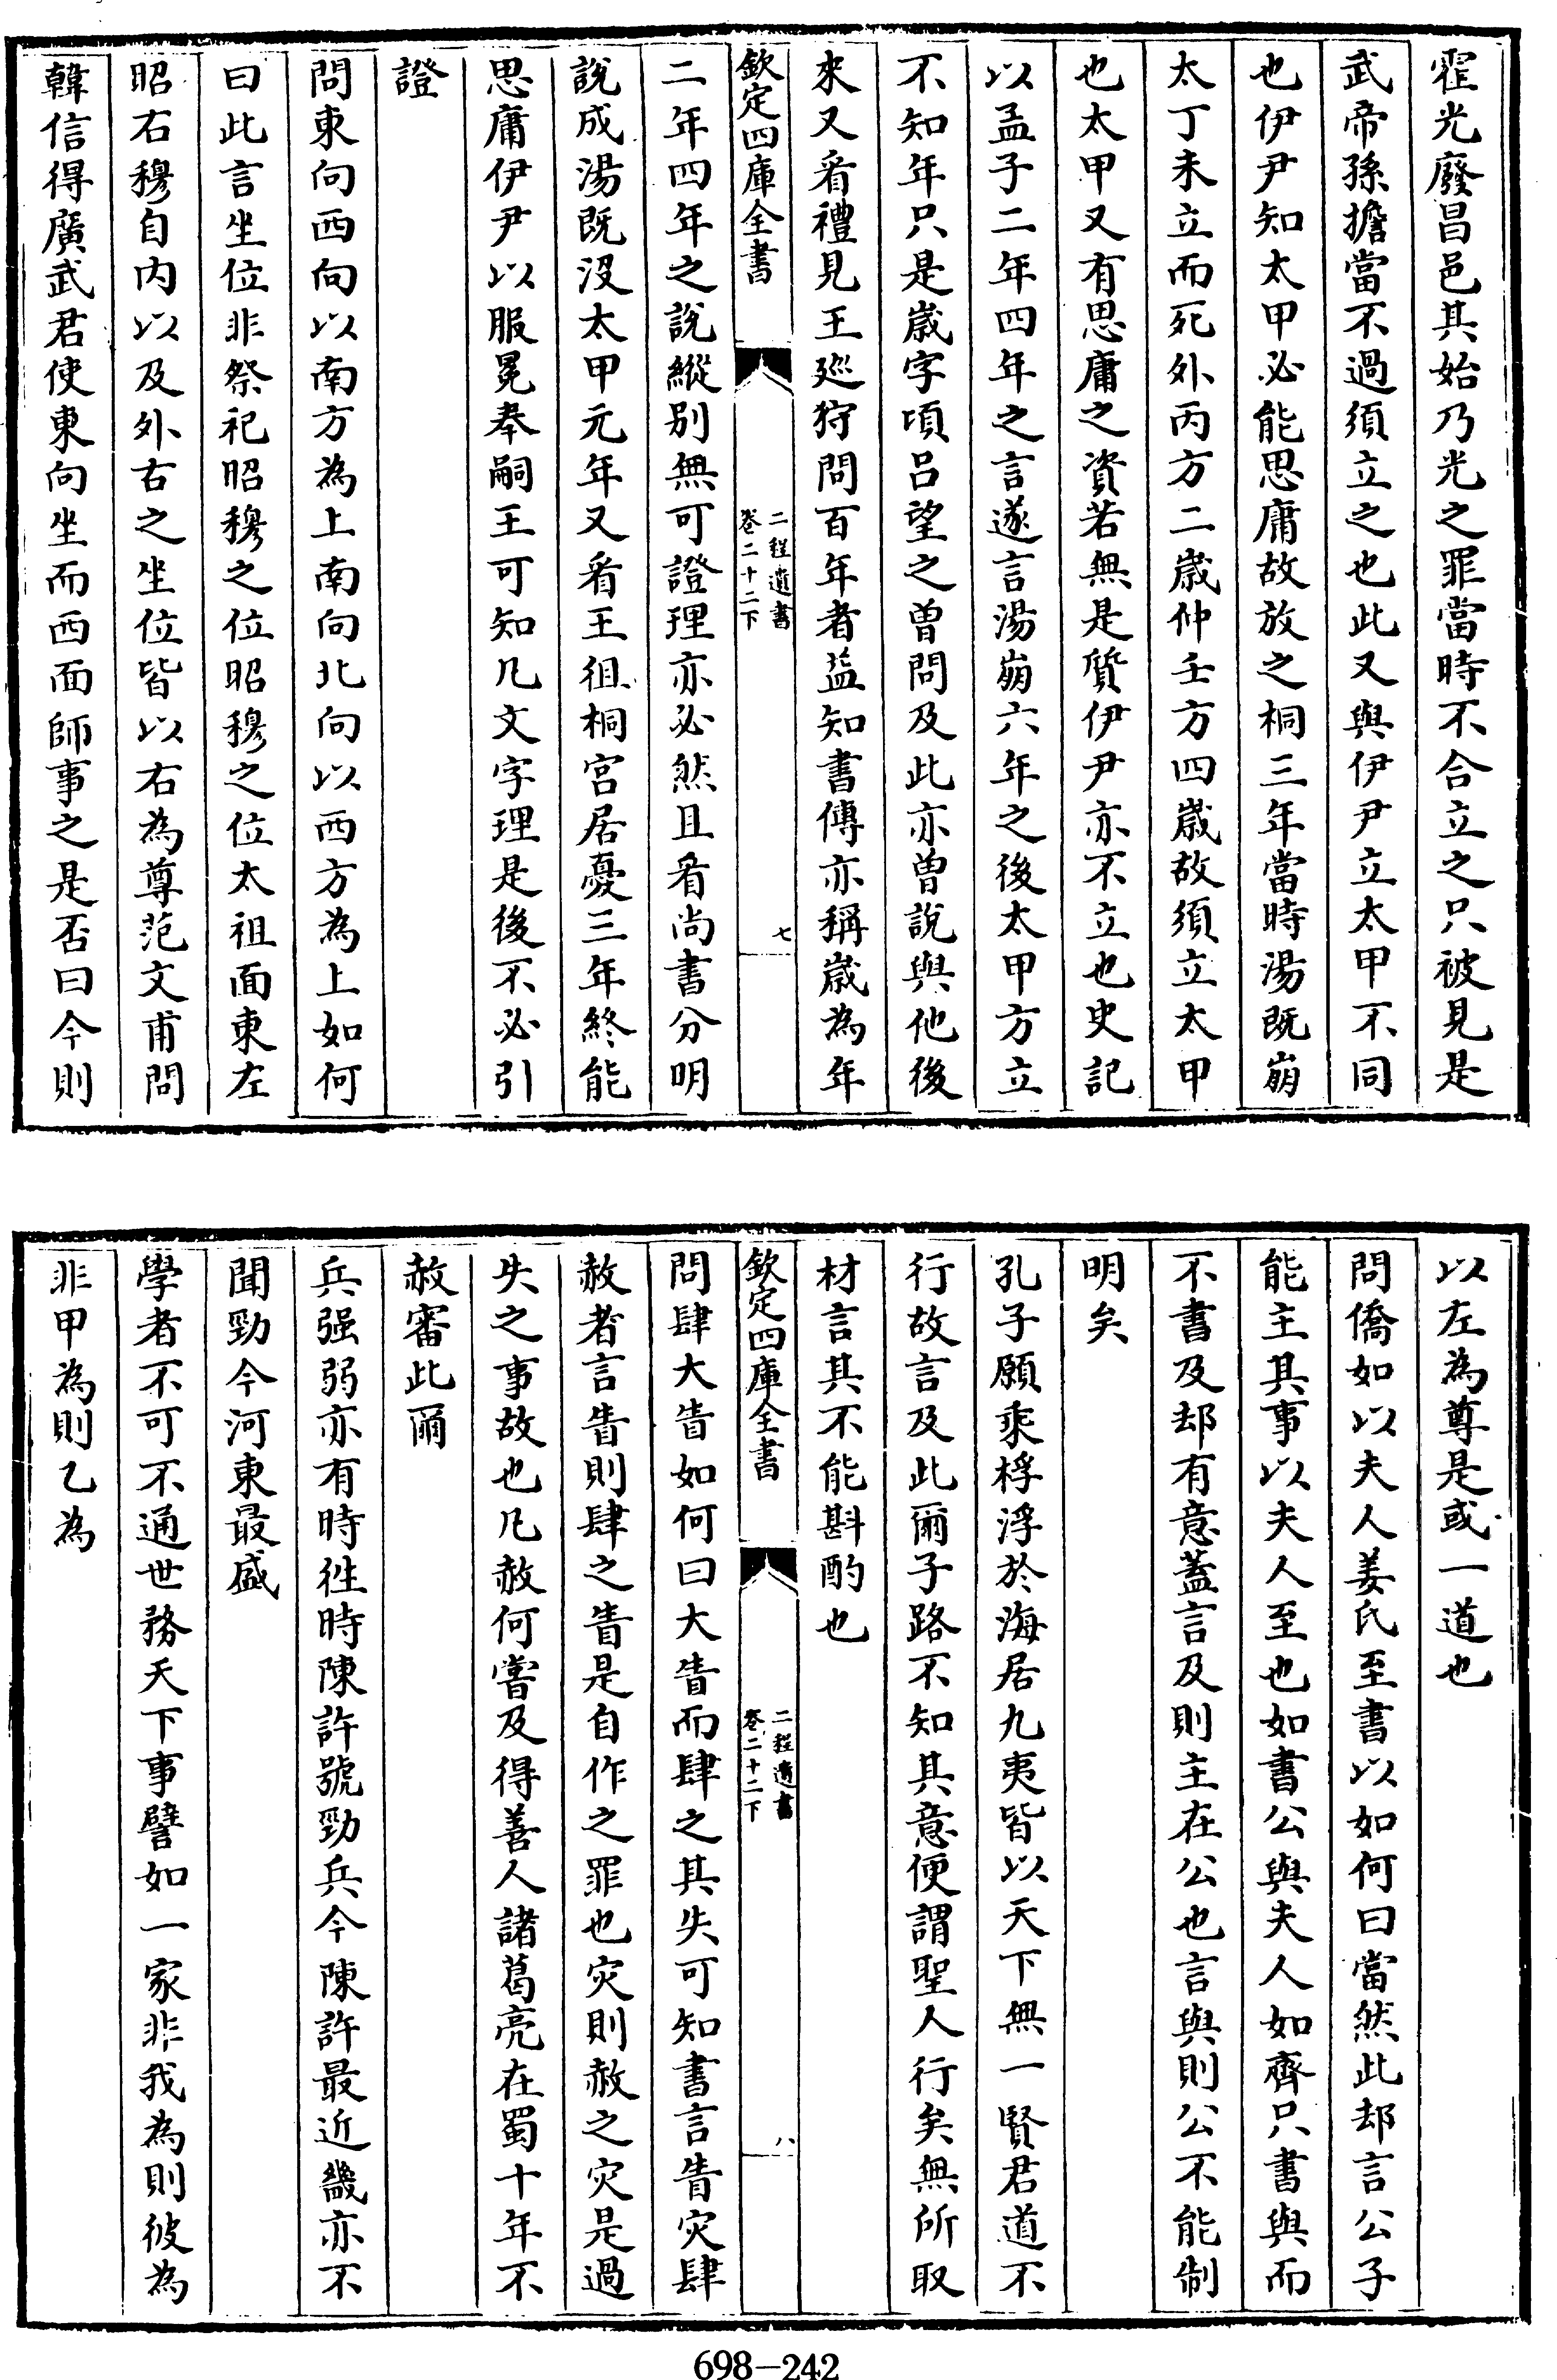 霍光廢昌邑其始乃光之罪當時不合立之只被見是
武帝孫擔當不過須立之也此又與伊尹立太甲不同
也伊尹知太甲必能思庸故放之桐三年當時湯既崩
太丁未立而死外丙方二歳仲壬方四歳故須立太甲
也太甲又有思庸之資若無是質伊尹亦不立也史記
以孟子二年四年之言遂言湯崩六年之後太甲方立
不知年只是歳字頃呂望之曽問及此亦曽說與他後
來又看禮見王廵狩問百年者益知書傳亦稱歳為年
欽定四庫全書
二程遺書
卷二十二下
七
二年四年之說縱别無可證理亦必然且看尚書分明
說成湯既沒太甲元年又看王徂桐宫居憂三年終能
思庸伊尹以服冕奉嗣王可知凡文字理是後不必引
證
問東向西向以南方為上南向北向以西方為上如何
曰此言坐位非祭祀昭穆之位昭穆之位太祖面東左
昭右穆自内以及外右之坐位皆以右為尊范文甫問
韓信得廣武君使東向坐而西面師事之是否曰今則
以左為尊是或一道也
問僑如以夫人姜氏至書以如何曰當然此却言公子
能主其事以夫人至也如書公與夫人如齊只書與而
不書及却有意蓋言及則主在公也言與則公不能制
明矣
孔子願乘桴浮於海居九夷皆以天下無一賢君道不
行故言及此爾子路不知其意便謂聖人行矣無所取
材言其不能斟酌也
欽定四庫全書
二程遺書
卷二十二下
八
問肆大眚如何曰大眚而肆之其失可知書言眚灾肆
赦者言眚則肆之眚是自作之罪也灾則赦之灾是過
失之事故也凡赦何嘗及得善人諸葛亮在蜀十年不
赦審此爾
兵强弱亦有時徃時陳許號勁兵今陳許最近畿亦不
聞勁今河東最盛
學者不可不通世務天下事譬如一家非我為則彼為
非甲為則乙為
698-242